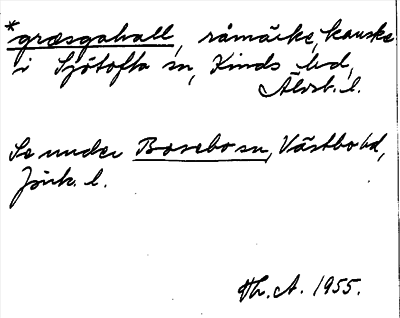 *græsgahall, råmärke, kanske
i Sjötofta sn, Kinds hd,
Älvsb. l.
Se under Bosebo sn, Västbo hd,
Jönk. l.
Th. A. 1955.